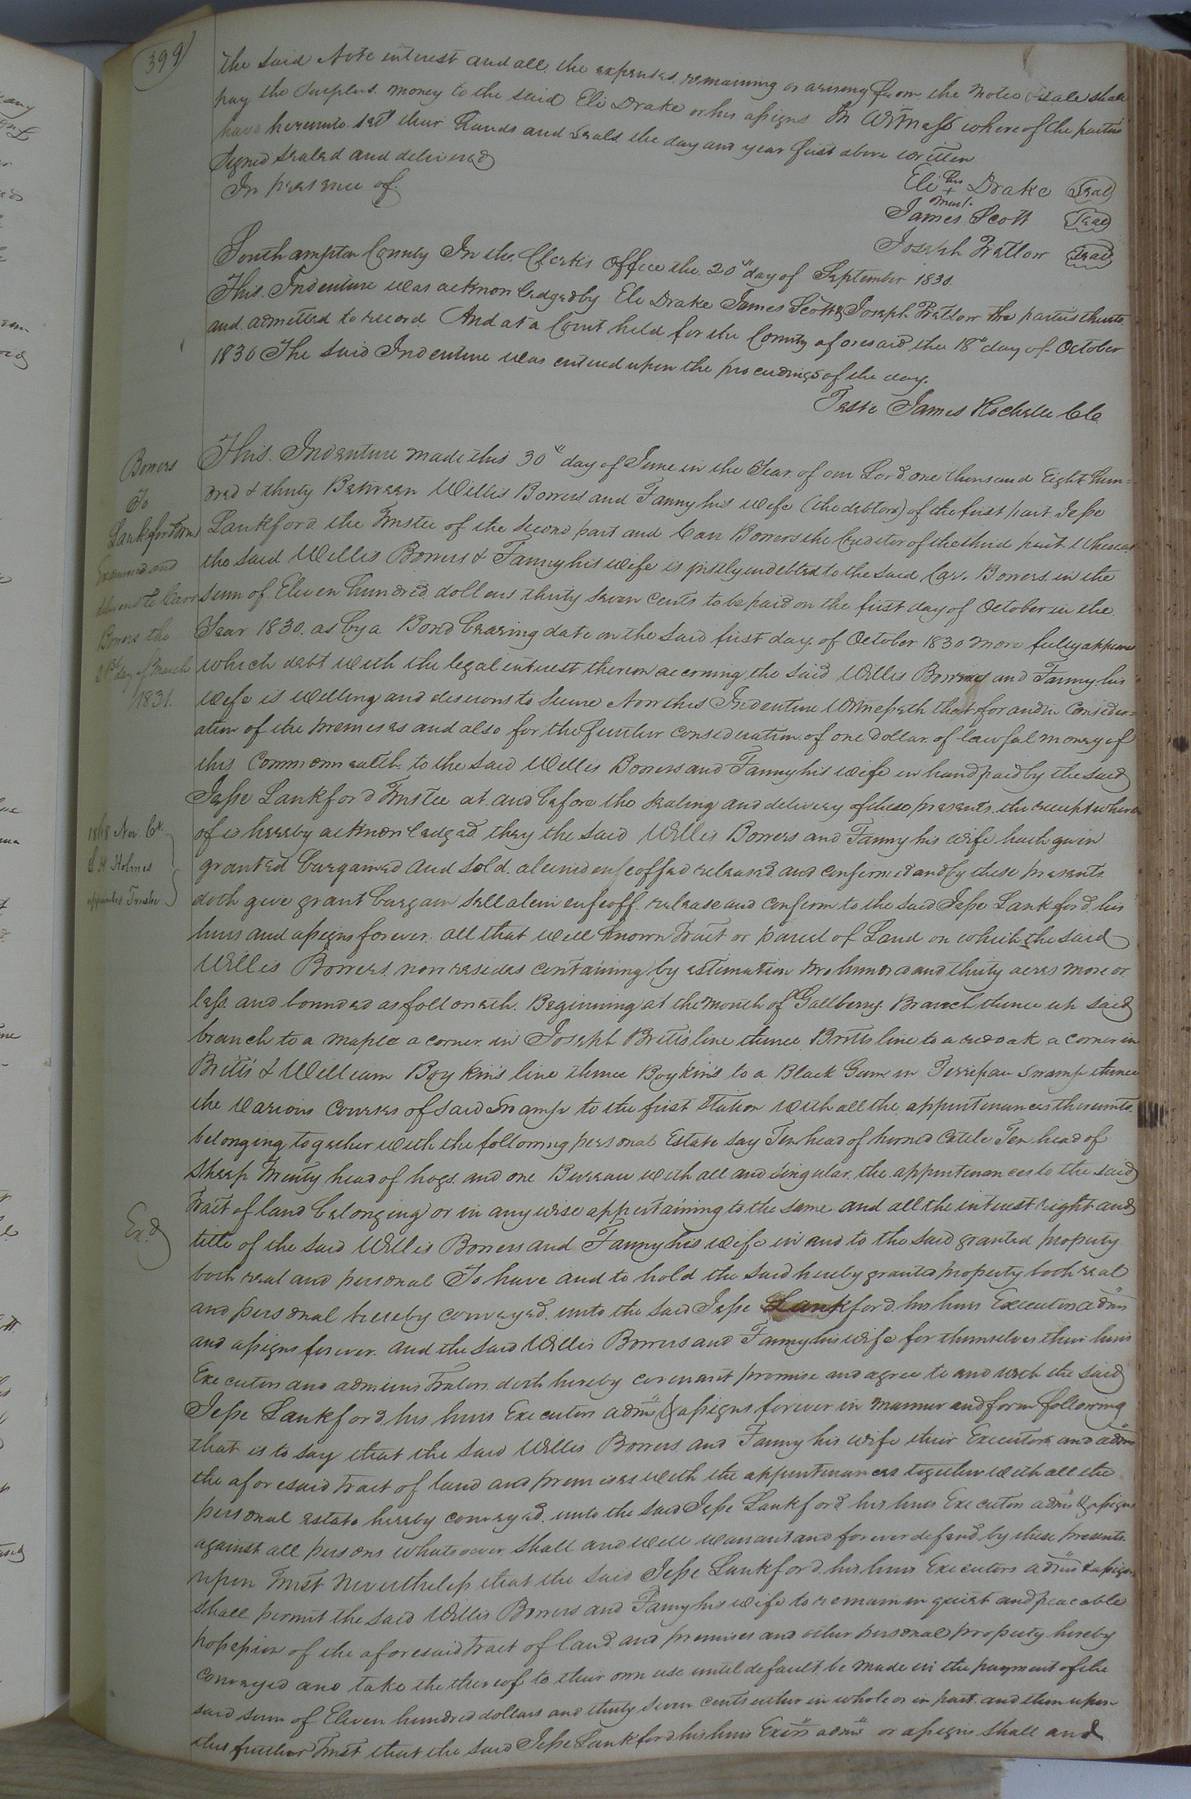 399
the said Note interest and all the expenses remaining or arising from the Notes sale shall
pay the Surplus money to the said Eli Drake or his assigns In Witness whereof the parties
have hereunto set their Hands and Seals the day and year first above written
Signed Sealed and delivered
In presence of
Eli his + mark Drake Seal
James Scott Seal
Joseph Pretlow Seal
Southampton County In the Clerks Office the 20th day of September 1830.
This Indenture was acknowledged by Eli Drake James Scott & Joseph Pretlow the parties thereto
and admitted to record And at a Court held for the County aforesaid the 18th day of October
1830 The said Indenture was entered upon the proceedings of the day.
Teste James Rochelle Clk
Bowers
To
Lankford
Examined and
delivered to Carr
Bowers the
day of March
1831.
This Indenture made this 30th day of June in the Year of our Lord one thousand Eight Hun=
dred & thirty Between Willis Bowers and Fanny his wife (the debtors) of the first part Jesse
Lankford the Trustee of the Second part and Carr Bowers the Creditor of the third part Whereas
the said Willis Bowers & Fanny his wife is justly indebted to the said Carr Bowers in the
Sum of Eleven hundred dollars thirty seven cents to be paid on the first day of October in the
Year 1830. as by a Bond bearing date on the said first day of October 1830 more fully appears
which debt with the legal interest thereon accruing the said Willis Bowers and Fanny his
wife is willing and desirous to Secure Now this Indenture Witnesseth that for and in Consider=
ation of the premises and also for the further consideration of one dollar of lawful money of
this Commonwealth to the said Willis Bowers and Fanny his wife in hand paid by the said
Jesse Lankford Trustee at and before the sealing and delivery of these presents the receipt where
of is hereby acknowledged they the said Willis Bowers and Fanny his wife hath given
granted bargained and Sold aliened enfeoffed released and confirmed and by these presents
doth give grant bargain sell alien enfeoff release and confirm to the said Jesse Lankford his
heirs and assigns forever all that well known Tract or parcel of Land on which the said
Willis Bowers now resides containing by estimation two hundred and thirty acres more or
less and bounded as followeth. Beginning at the mouth of Gallberry Branch thence up said
branch to a maple a corner in Joseph Britts line thence Britts line to a red oak a corner in
Britts & William Boykins line thence Boykins to a Black Gum in Terrapan Swamp thence
the various courses of said Swamp to the first Station with all the appurtenances thereunto
belonging together with the following personal Estate say Ten head of horned Cattle Ten head of
Sheep Twenty head of hogs and one Bureau with all and singular the appurtenances to the said
Tract of land belonging or in any wise appertaining to the same and all the interest right and
title of the said Willis Bowers and Fanny his wife in and to the said granted property
both real and personal To have and to hold the said hereby granted property both real
and personal hereby conveyed unto the said Jesse Lankford his heirs Executors admrs
and assigns forever. and the said Willis Bowers and Fanny his wife for themselves their heirs
Executors and administrators doth hereby covenant promise and agree to and with the said
Jesse Lankford his heirs Executors admrs & assigns forever in manner and form following
that is to say that the said Willis Bowers and Fanny his wife their Executors and admrs
the aforesaid tract of land and premises with the appurtenances together with all the
personal estate hereby conveyed unto the said Jesse Lankford his heirs Executors admrs & assigns
against all persons whatsoever shall and will warrant and forever defend by these presents.
upon Trust Nevertheless that the said Jesse Lankford his heirs Executors admrs & assigns
shall permit the said Willis Bowers and Fanny his wife to remain in quiet and peaceable
possession of the aforesaid tract of land and premises and other personal property hereby
conveyed and take the thereof to their own use until default be made in the payment of the
said sum of Eleven hundred dollars and thirty seven cents either in whole or in part. and then upon
this further Trust that the said Jesse Lankford his heirs Exors admrs or assigns shall and
1868 Nov Ct
Holmes
appointed Trustee
Exd